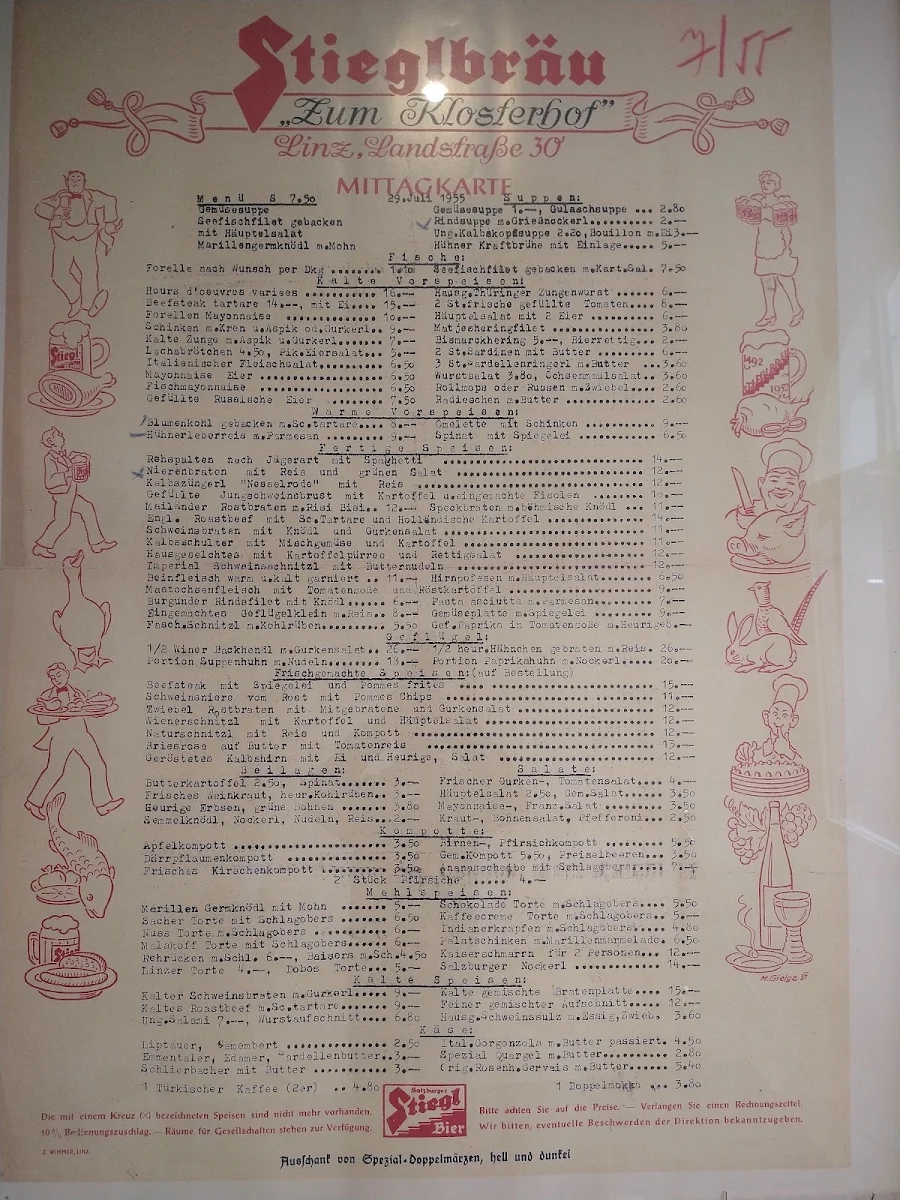 7/55
Stieglbräu
„Zum Klosterhof"
Linz, Landstraße 30
MITTAGKARTE
Menü S 7.50 29.Juli 1955 Suppen:
Gemüsesuppe Gemüsesuppe 1.--, Gulaschsuppe ... 2.80
Seefischfilet gebacken Rindsuppe m.Grießnockerl.. 2.--
mit Häuptelsalat Ung.Kalbskopfsuppe 2.20,Bouillon m.Ei3.--
Marillengermknödl m.Mohn Hühner Kraftbrühe mit Einlage..... 5.--
Fische:
Forelle nach Wunsch per Dkg ........ 1.10 Seefischfilet gebacken m.Kart.Sal. 7.50
Kalte Vorspeisen:
Hours d'oeuvres varises ........... 16.-- Hausg.Thüringer Zungenwurst ...... 6.--
Beefsteak tartare 14.--, mit Ei.... 15.-- 2 St.frische gefüllte Tomaten.... 8.--
Forellen Mayonnaise ........... 10.-- Häuptelsalat mit 2 Eier ........ 6.--
Schinken m.Kren u.Aspik od.Gurkerl.. 9.-- Matjesheringfilet ............ 3.80
Kalte Zunge m.Aspik u.Gurkerl...... 7.-- Bismarckhering 5.--, Bierrettig... 2.--
Lachsbrötchen 4.50, Pik.Eiersalat... 5.-- 2 St.Sardinen mit Butter ........ 6.--
Italienischer Fleischsalat........ 6.50 3 St.Sardellenringerl m.Butter ...3.60
Mayonnaise Eier ............... 6.50 Wurstsalat 3.80, Ochsenmaulsalat..3.60
Fischmayonnaise ............... 6.50 Rollmops oder Russen m.Zwiebel.... 2.60
Gefüllte Russische Eier ........ 7.50 Radieschen m.Butter ........... 2.60
Warme Vorspeisen:
Blumenkohl gebacken m.Sc.tartare.... 8.-- Omelette mit Schinken .......... 9.--
Hühnerleberreis m.Parmesan ........ 9.-- Spinat mit Spiegelei ........... 6.50
Fertige Speisen:
Rehspalten nach Jägerart mit Spaghetti ........................ 14.--
Nierenbraten mit Reis und grünen Salat ........................ 12.--
Kalbszüngerl "Nesselrode" mit Reis ........................ 12.--
Gefüllte Jungschweinsbrust mit Kartoffel u.eingemachte Fisolen ........ 10.--
Mailänder Rostbraten m.Risi Bisi.. 12.-- Speckbraten m.böhmische Knödl ... 11.--
Engl. Roastbeef mit Sc.Tartare und Holländische Kartoffel ............ 14.--
Schweinsbraten mit Knödl und Gurkensalat ........................ 11.--
Kalbsschulter mit Mischgemüse und Kartoffel ..................... 11.--
Hausgeselchtes mit Kartoffelpürree und Rettigsalat ................ 12.--
Imperial Schweinsschnitzl mit Butternudeln ...................... 12.--
Beinfleisch warm u.kalt garniert .. 11.-- Hirnpofesen m.Häuptelsalat....... 6.50
Mastochsenfleisch mit Tomatensoße und Röstkartoffel .............. 9.--
Burgunder Rindsfilet mit Knödl..... 6.-- Pasta asciutta m.Parmesan....... 7.--
Eingemachtes Geflügelklein m.Reis.. 8.-- Gemüseplatte m.Spiegelei ....... 9.--
Fasch.Schnitzl m.Kohlrüben........ 5.50 Gef.Paprika in Tomatensoße m.Heurige8.--
Geflügel:
1/2 Winer Backhendl m.Gurkensalat.. 26.-- 1/2 heur.Hähnchen gebraten m.Reis. 26.--
Portion Suppenhuhn m.Nudeln....... 18.-- Portion Paprikahuhn m.Nockerl... 20.--
Frischgemachte Speisen:(auf Bestellung)
Beefsteak mit Spiegelei und Pommes frites ...................... 15.--
Schweinsniere vom Rost mit Pommes Chips ........................ 11.--
Zwiebel Rostbraten mit Mitgebratene und Gurkensalat ............. 12.--
Wienerschnitzl mit Kartoffel und Häuptelsalat .................. 12.--
Naturschnitzl mit Reis und Kompott ........................... 12.--
Briesrose auf Butter mit Tomatenreis ......................... 15.--
Geröstetes Kalbshirn mit Ei und Heurige, Salat .................. 12.--
Beilagen: Salate:
Butterkartoffel 2.50, Spinat....... 3.-- Frischer Gurken-, Tomatensalat... 4.--
Frisches Weinkraut, heur.Kohlrüben.. 3.-- Häuptelsalat 2.50, Gem.Salat..... 3.50
Heurige Erbsen, grüne Bohnen ...... 3.80 Mayonnaise-, Franz.Salat ....... 3.50
Semmelknödl, Nockerl, Nudeln, Reis..2.-- Kraut-, Bohnensalat, Pfefferoni... 2.50
Kompotte:
Apfelkompott ............... 3.50 Birnen-, Pfirsichkompott ........ 5.50
Dörrpflaumenkompott ........... 3.50 Gem.Kompott 5.50, Preiselbeeren... 3.50
Frisches Kirschenkompott ........ 3.50 Ananasscheibe mit Schlagobers.... 7.--
2 Stück Pfirsiche ..... 4.--
Mehlspeisen:
Marillen Germknödl mit Mohn ...... 5.-- Schokolade Torte m.Schlagobers.... 5.50
Sacher Torte mit Schlagobers ..... 6.50 Kaffeecreme Torte m.Schlagobers.. 5.--
Nuss Torte m.Schlagobers ........ 6.-- Indianerkrapfen m.Schlagobers.... 4.80
Malakoff Torte mit Schlagobers.... 6.-- Palatschinken m.Marillenmarmelade. 6.50
Rehrücken m.Schl. 6.--, Baisers m.Sch.4.50 Kaiserschmarrn für 2 Personen... 12.--
Linzer Torte 4.--, Dobos Torte... 5.-- Salzburger Nockerl ........... 14.--
Kalte Speisen:
Kalter Schweinsbraten m.Gurkerl..... 9.-- Kalte gemischte Bratenplatte.... 15.--
Kaltes Roastbeef m.Sc.tartare...... 9.-- Feiner gemischter Aufschnitt.... 12.--
Ung.Salami 7.--, Wurstaufschnitt.... 6.80 Hausg.Schweinssulz m.Essig,Zwieb. 3.60
Käse:
Liptauer, Camembert ........... 2.50 Ital.Gorgonzola m.Butter passiert. 4.50
Emmentaler, Edamer, Sardellenbutter..3.-- Spezial Quargel m.Butter........ 2.80
Schlierbacher mit Butter ........ 3.-- Orig.Rosenh.Gervais m.Butter..... 5.40
1 Türkischer Kaffee (2er) .. 4.80 1 Doppelmokka ... 3.80
Salzburger
Stiegl
Bier
Die mit einem Kreuz (X) bezeichneten Speisen sind nicht mehr vorhanden. Bitte achten Sie auf die Preise. — Verlangen Sie einen Rechnungszettel.
10% Bedienungszuschlag. — Räume für Gesellschaften stehen zur Verfügung. Wir bitten, eventuelle Beschwerden der Direktion bekanntzugeben.
J. WIMMER, LINZ
Ausschank von Spezial-Doppelmärzen, hell und dunkel
Stiegl
1492
M. Gielge 51